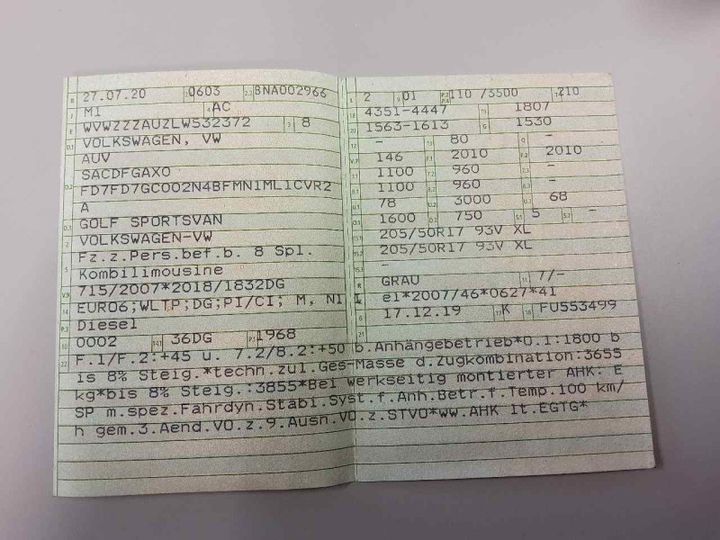 27.07.20 0603 BNA002966
M1 AC
WVWZZZAUZLW532372 8
VOLKSWAGEN, VW
AUV
SACDFGAX0
FD7FD7GC002N4BFMN1ML1CVR2
A
GOLF SPORTSVAN
VOLKSWAGEN-VW
Fz.z.Pers.bef.b. 8 Spl.
Kombilimousine
715/2007*2018/1832DG
EURO6;WLTP;DG;PI/CI; M, N1 I
Diesel
0002 36DG 1968
2 01 110 /3500 210
4351-4447 1807
1563-1613 1530
- 80 -
146 2010 2010
1100 960 -
1100 960 -
78 3000 68
1600 750 5 -
205/50R17 93V XL
205/50R17 93V XL
-
GRAU 7/-
e1*2007/46*0627*41
17.12.19 K FU553499
F.1/F.2:+45 u. 7.2/8.2:+50 b.Anhängebetrieb*O.1:1800 b
is 8% Steig.*techn.zul.Ges-Masse d.Zugkombination:3655
kg*bis 8% Steig.:3855*Bei werkseitig montierter AHK: E
SP m.spez.Fahrdyn.Stabi.Syst.f.Anh.Betr.f.Temp.100 km/
h gem.3.Aend.VO.z.9.Ausn.VO.z.STVO*ww.AHK lt.EGTG*